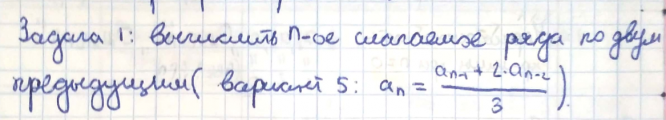 Задача 1: вычислить n-ое слагаемое ряда по двум
предыдущим( вариант 5: aₙ = (aₙ₋₁ + 2·aₙ₋₂)/3 ).